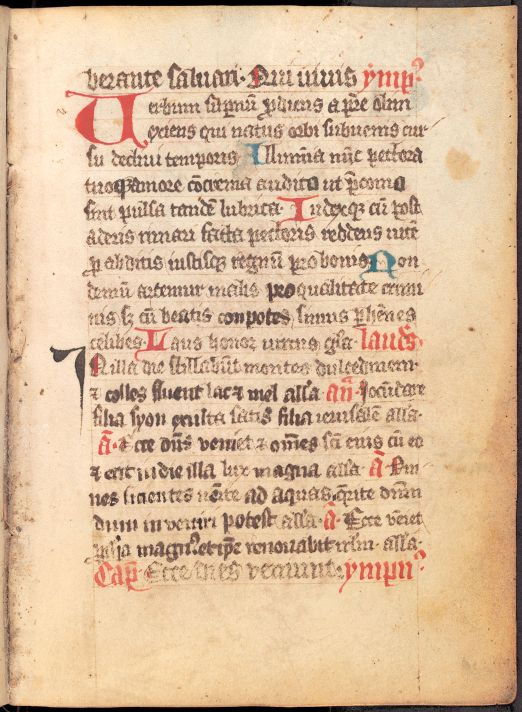 berante saluari · Qui uiuis ympꝰ
Uerbum sup̄nū ꝓdiens a pr̄e olim
exiens qui natus orbi subuenis cur
su decliui temporis Illumīa nūc pectora
tuoqꝫ amore cōcrema audito ut p̄conio
sint pulsa tandē lubrica · Iudexqꝫ cū post
aderis rimari facta pectoris reddens uicē
ꝓ abditis iustisqꝫ regnū pro bonis Non
demū artemur malis pro qualitate crimi
nis sꝫ cū beatis conpotes simus ꝑhēnes
celibes Laus honor uirtus gl̄a · laudꝭ
In illa die stillabūt montes dulcedinem
⁊ colles fluent lac ⁊ mel all̄a an̄ Iocundare
filia syon exulta satis filia ierusalē all̄a ·
ā · Ecce dn̄s veniet ⁊ om̄es sc̄i eius cū eo
⁊ erit in die illa lux magna all̄a ā Om
nes sicientes uenite ad aquas q̄rite dn̄m
dum inueniri potest all̄a · ā · Ecce veniet
ꝓph̄a magnꝰ et ip̄e renouabit irl̄m · all̄a ·
Cap̄ Ecce dies veniunt · ympnꝰ